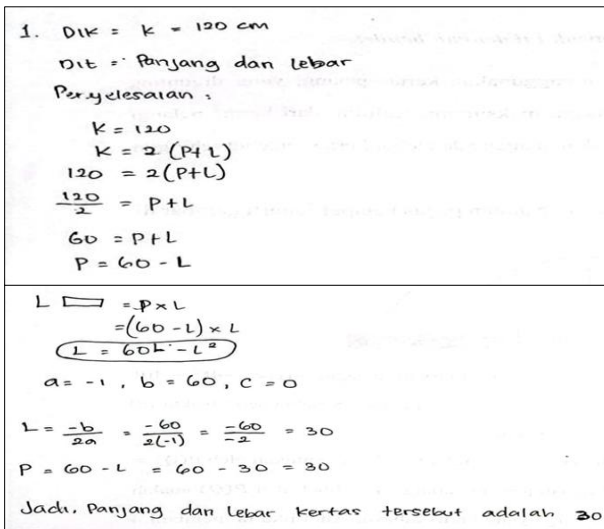 1. Dik = k = 120 cm
Dit = Panjang dan Lebar
Penyelesaian :
k = 120
k = 2 (P+L)
120 = 2(P+L)
120/2 = P+L
60 = P+L
P = 60 - L
L ▭ = P x L
=(60 -L) x L
L = 60L - L²
a = -1 , b = 60, c = 0
L = -b/2a = -60/2(-1) = -60/-2 = 30
P = 60 - L = 60 - 30 = 30
Jadi. Panjang dan Lebar kertas tersebut adalah 30